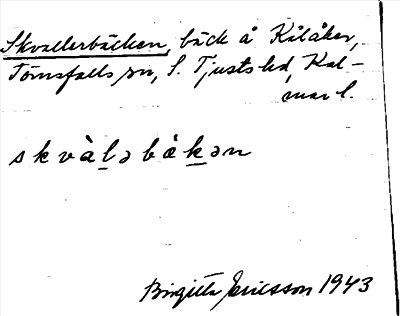 Skvallerbäcken, bäck å Kålåker,
Törnsfalls sn, S. Tjusts hd, Kal-
mar l.
skvàl̲əbäk̲ən
Birgitta Ericsson 1943